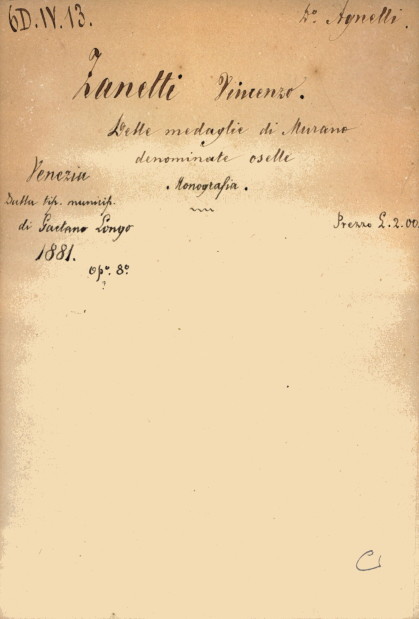 6D.IV.13.
Dº. Agnelli.
Zanetti Vincenzo.
Delle medaglie di Murano
denominate oselle
. Monografia.
Venezia
Dalla tip. municip.
di Gaetano Longo
Prezzo L.2.00.
1881.
opº. 8º
C